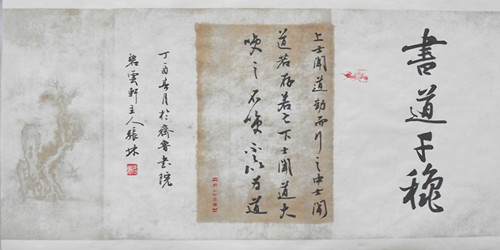 書道千穐
上士聞道勤而行之中士聞
道若存若亡下士聞道大
咲之不咲不足以为道
丁酉春月於齊魯書院
碧雲軒主人張林